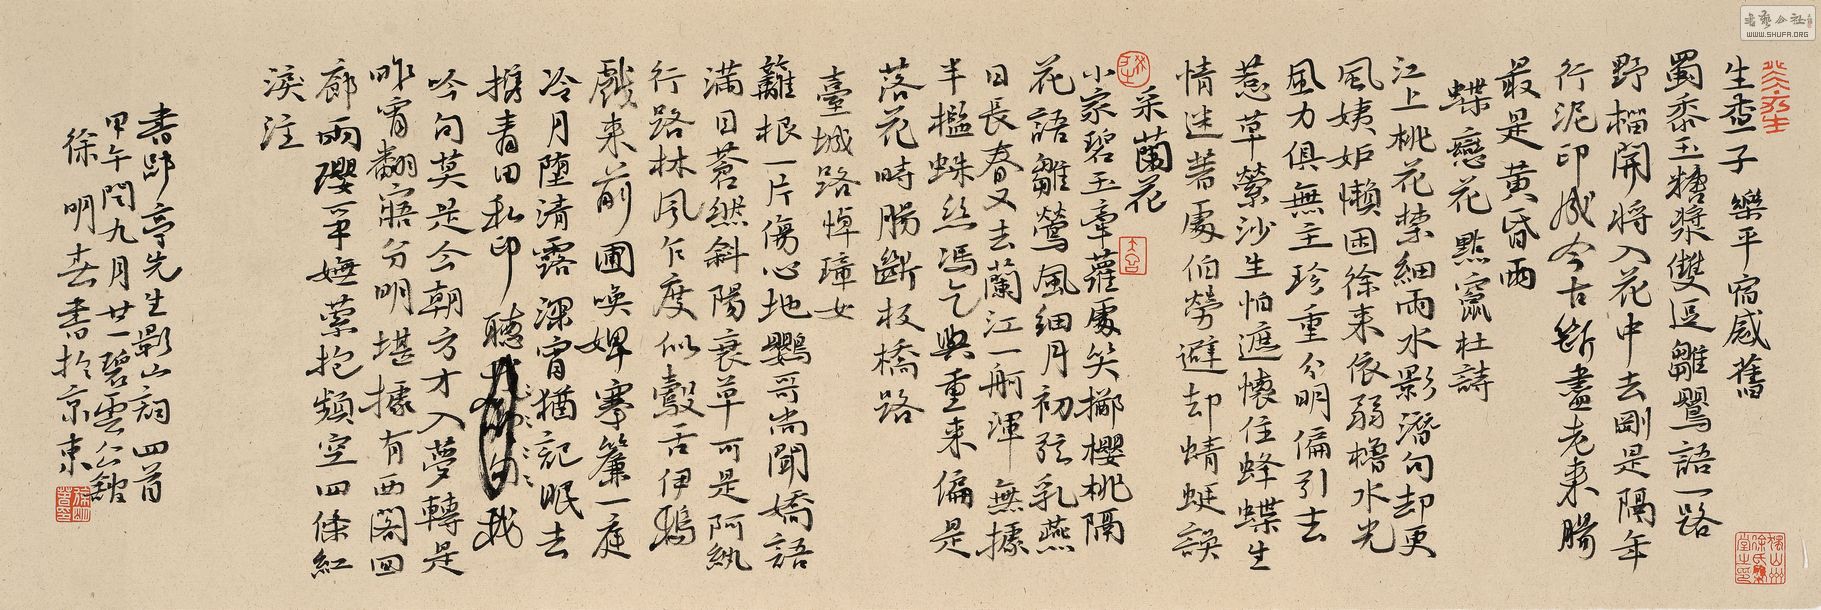 生查子 樂平宿感舊
蜀黍玉糖漿雙逗雛鶯語一路
野櫺開將入花中去剛是隔年
行泥印成今古斷盡老來腸
最是黃昏雨
蝶戀花 點竄杜詩
江上桃花禁細雨水影潛句却更
風姨妒懶困徐來依弱櫓水光
風力俱無主珍重分明偏引去
惹草縈沙生怕遮懷住蜂蝶生
情迷著處伯勞避却蜻蜓誤
采蘭花
小家碧玉牽蘿處笑擲櫻桃隔
花語雛鶯風細月初弦乳燕
日長春又去蘭江一舸渾無據
半檻蛛絲馮乞與重來偏是
落花時腸斷板橋路
臺城路 悼瓊女
籬根一片傷心地鸚哥尚聞嬌語
滿目蒼然斜陽衰草可是阿紈
行路林風乍度似鷇舌伊鴉
戲來前圃喚婢搴簾一庭
冷月墮清露 深宵猶記眠去
攜青田私印聽我
吟句莫是今朝方才入夢轉是
昨宵翻寤分明堪據有西閣回
廊雨瓔平嫵縈抱頰空四條紅
淚注
書邵亭先生影山詞四首
甲午閏九月廿一碧雲公館
徐明春書於京東
書藝公社
WWW.SHUFA.ORG